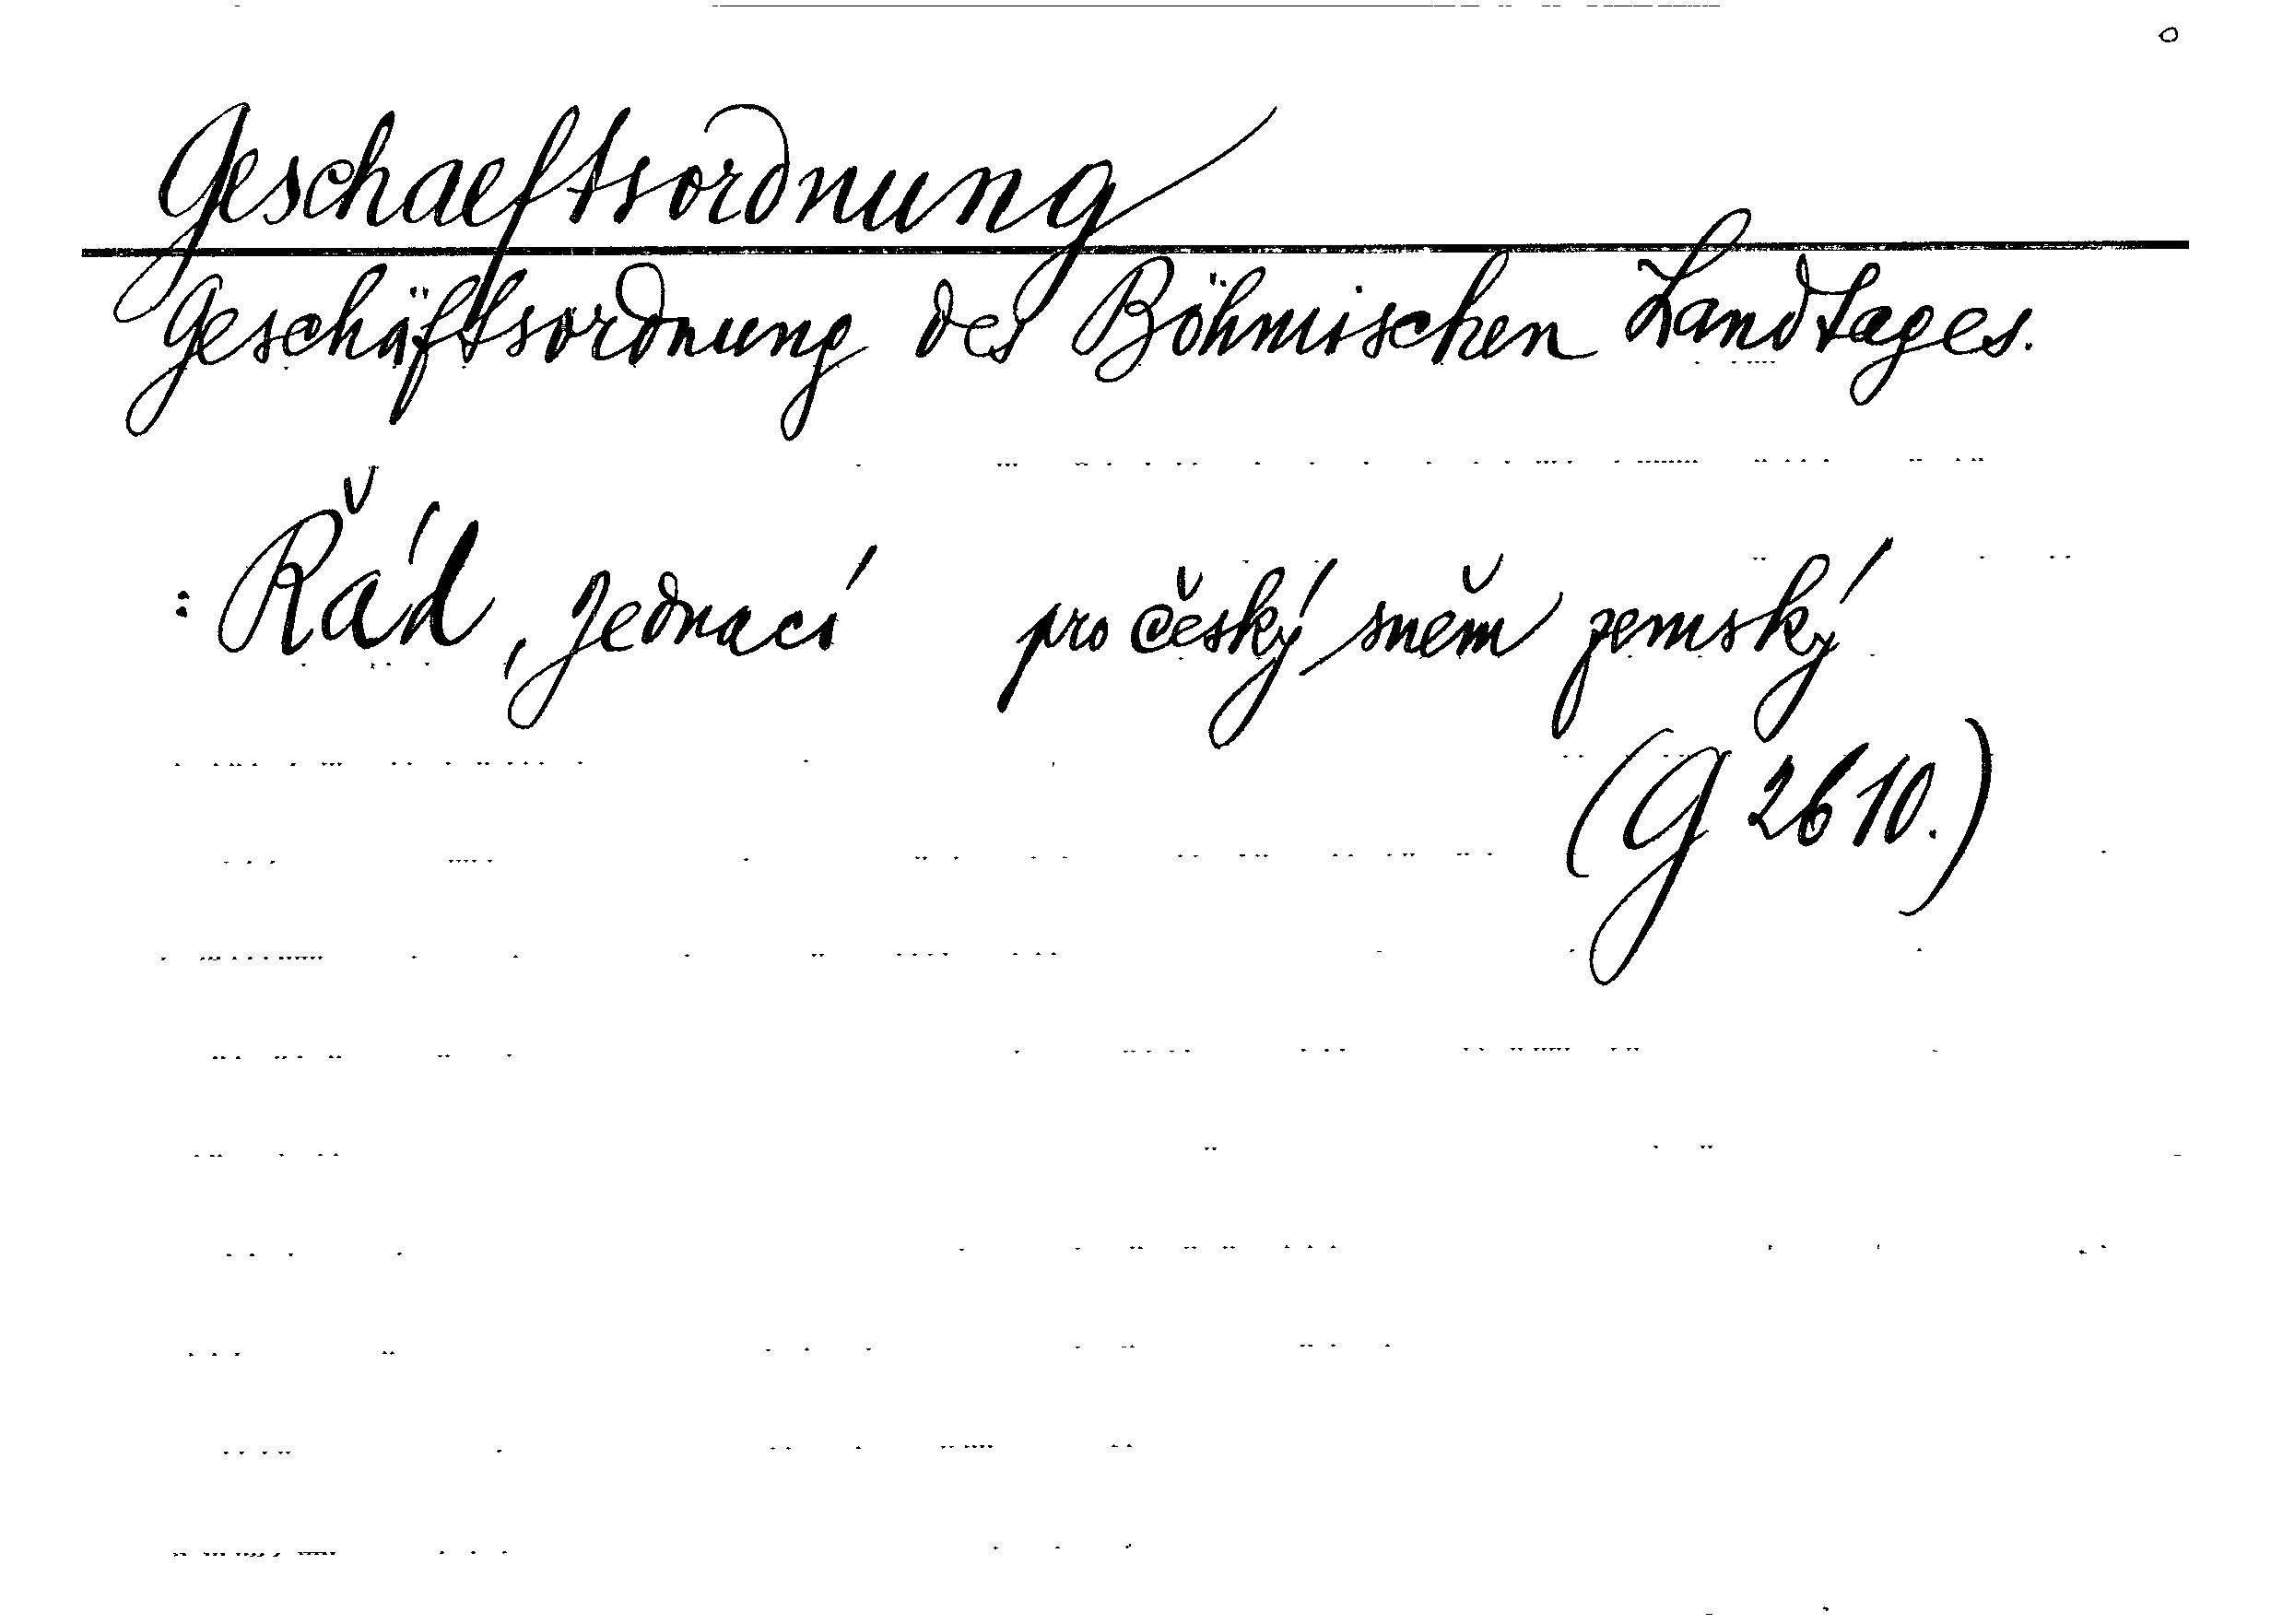 Geschaeftsordnung
Geschäftsordnung des Böhmischen Landtages.
: Řád, jednací pro český sněm zemský
(G 2610.)